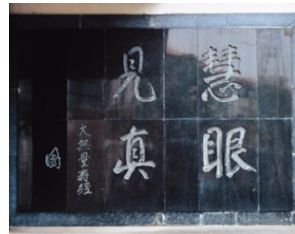 慧眼
見真
大無量壽經